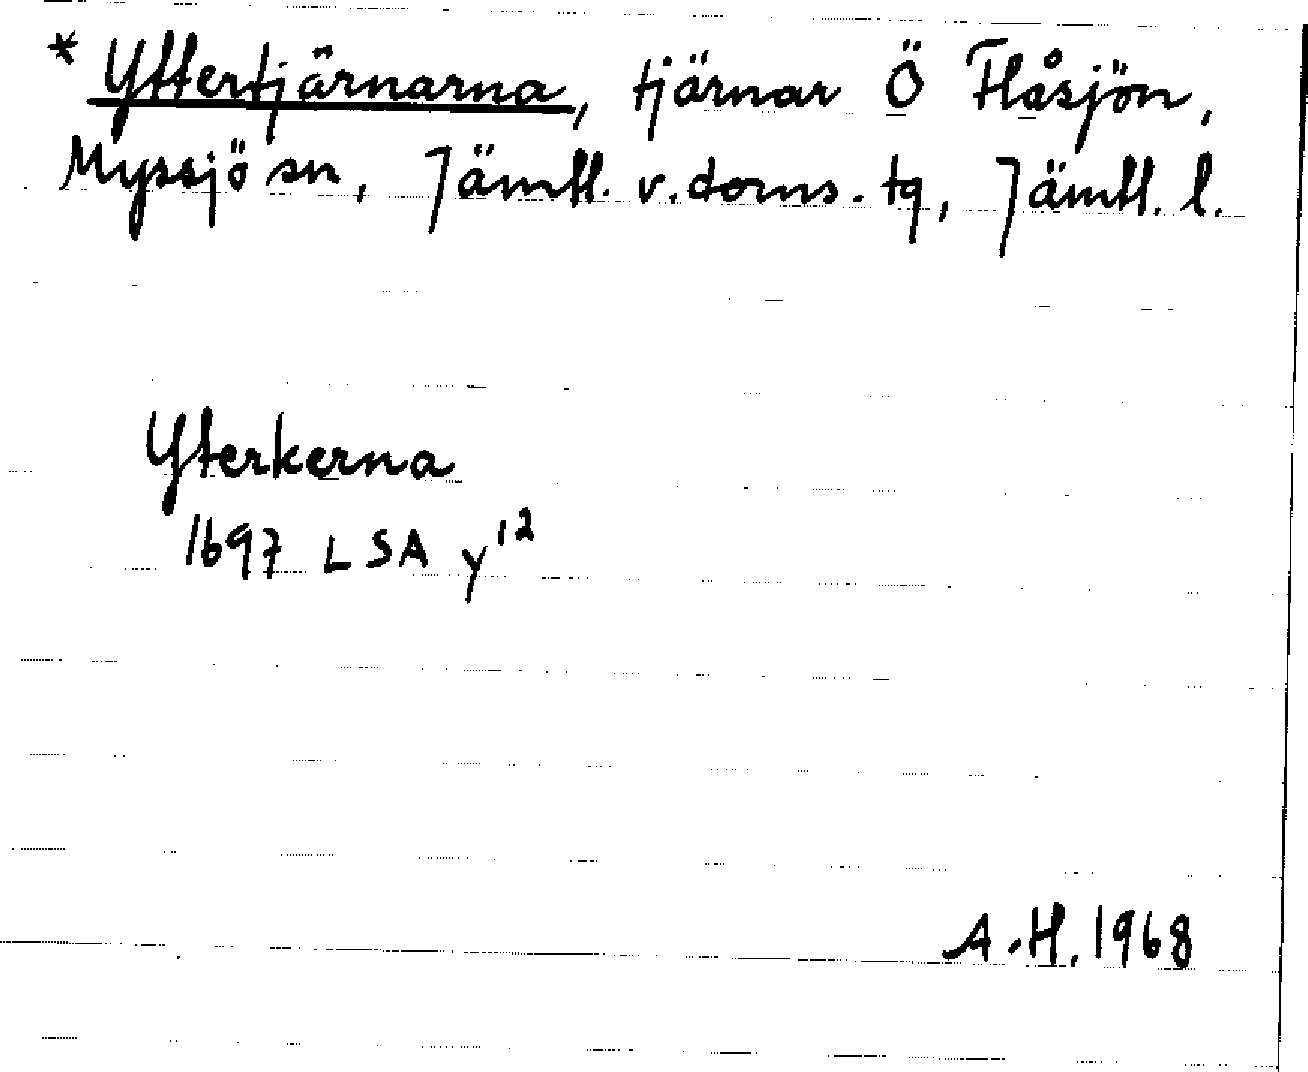 * Yttertjärnarna, tjärnar Ö Flåsjön,
Myssjö sn, Jämtl. v. doms. tg, Jämtl. l.
Yterkerna
1697 LSA y¹²
A.H. 1968